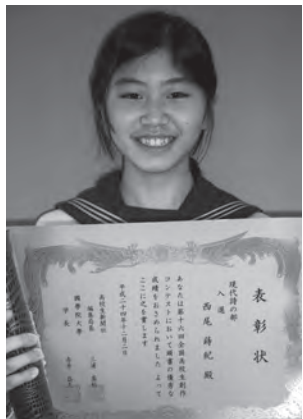 表彰状
現代詩の部
入選
西尾 蒔紀 殿
あなたは第十六回全国高校生創作
コンテストにおいて頭書の優秀な
成績をおさめられました よって
ここに之を賞します
平成二十四年十二月二日
高校生新聞社
編集局長
國學院大學
学長